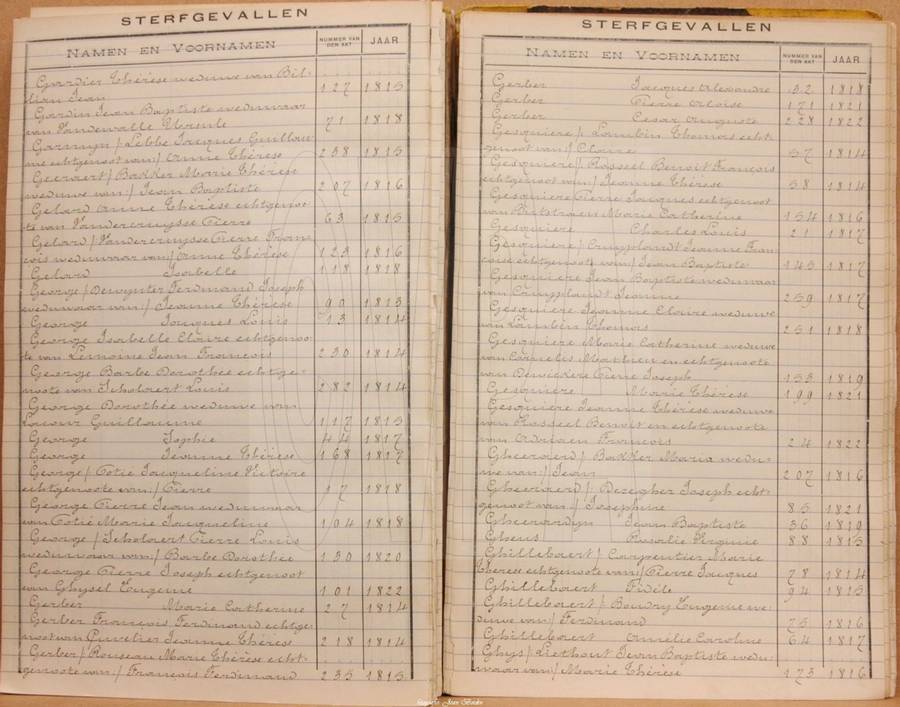 STERFGEVALLEN
NAMEN EN VOORNAMEN NUMMER VAN DEN AKT JAAR
Gardier Thérèse weduwe van Bil-
lian Jean 127 1815
Gardin Jean Baptiste weduwaar
van Vandewalle Ursule 71 1818
Garmyn / Lebbe Jacques Guillau-
me echtgenoot van / Anne Thérèse 238 1815
Geeraert / Bakker Marie Thérèse
weduwe van / Jean Baptiste 207 1816
Gelard Anne Thérèse echtgenoo-
te van Vandercruysse Pierre 63 1815
Gelard / Vandercruysse Pierre Fran-
cois weduwaar van / Anne Thérèse / 123 1816
Gelard Isabelle 118 1818
George / Dewynter Ferdinand Joseph
weduwaar van / Jeanne Thérèse 90 1813
George Jacques Louis 13 1814
George Isabelle Claire echtgenoo-
te van Lemoine Jean François 230 1814
George Barbe Dorothée echtge-
noote van Scholaert Louis 282 1814
George Dorothée weduwe van
Lacour Guillaume 117 1815
George Sophie 44 1817
George Jeanne Thérèse 168 1817
George / Cotié Jacqueline Victoire
echtgenoote van / Pierre 17 1818
George Pierre Jean weduwaar
van Cotié Marie Jacqueline 104 1818
George / Scholaert Pierre Louis
weduwaar van / Barbe Dorothée 130 1820
George Pierre Joseph echtgenoot
van Ghysel Eugenie 101 1822
Gerber Marie Catherine 27 1814
Gerber François Ferdinand echtge-
noot van Cuvelier Jeanne Thérèse 218 1814
Gerber / Rouseau Marie Thérèse echt-
genoote van / François Ferdinand 235 1815
STERFGEVALLEN
NAMEN EN VOORNAMEN NUMMER VAN DEN AKT JAAR
Gerber Jacques Alexandre 32 1818
Gerber Pierre Aloise 171 1821
Gerber Cesar Auguste 228 1822
Gesquiere / Lambin Thomas echt-
genoot van / Claire 57 1814
Gesquiere / Rosseel Benoit François
echtgenoot van / Jeanne Thérèse 58 1814
Gesquiere Pierre Jacques echtgenoot
van Marie Catherine 154 1816
Gesquiere Charles Louis 21 1817
Gesquiere / Cruyplandt Jeanne Fran-
coise echtgenoote van / Jean Baptiste 145 1817
Gesquiere Jean Baptiste weduwaar
van Cruyplandt Jeanne 259 1817
Gesquiere Jeanne Claire weduwe
van Lambin Thomas 251 1818
Gesquiere Marie Catherine weduwe
van Cornelis Mathieu en echtgenoote
van Dewickere Pierre Joseph 133 1819
Gesquiere Marie Thérèse 199 1821
Gesquiere Jeanne Thérèse weduwe
van Rosseel Benoit en echtgenoote
van Adriaen François 24 1822
Gheeraerd / Bakker Maria wedu-
we van / Jean 207 1816
Gheeraerd / Dezegher Joseph echt-
genoot van / Josephine 85 1821
Gheerardyn Jean Baptiste 36 1819
Gheus Rosalie Virginie 88 1815
Ghillebaert / Carpentier Marie
Thérèse echtgenoote van / Pierre Jacques 78 1814
Ghillebaert Fidèle 94 1815
Ghillebaert / Baudry Eugenie we-
duwe van / Ferdinand 75 1816
Ghillebaert Amélie Caroline 64 1817
Ghys / Liethout Jean Baptiste wedu-
waar van / Marie Thérèse 173 1816